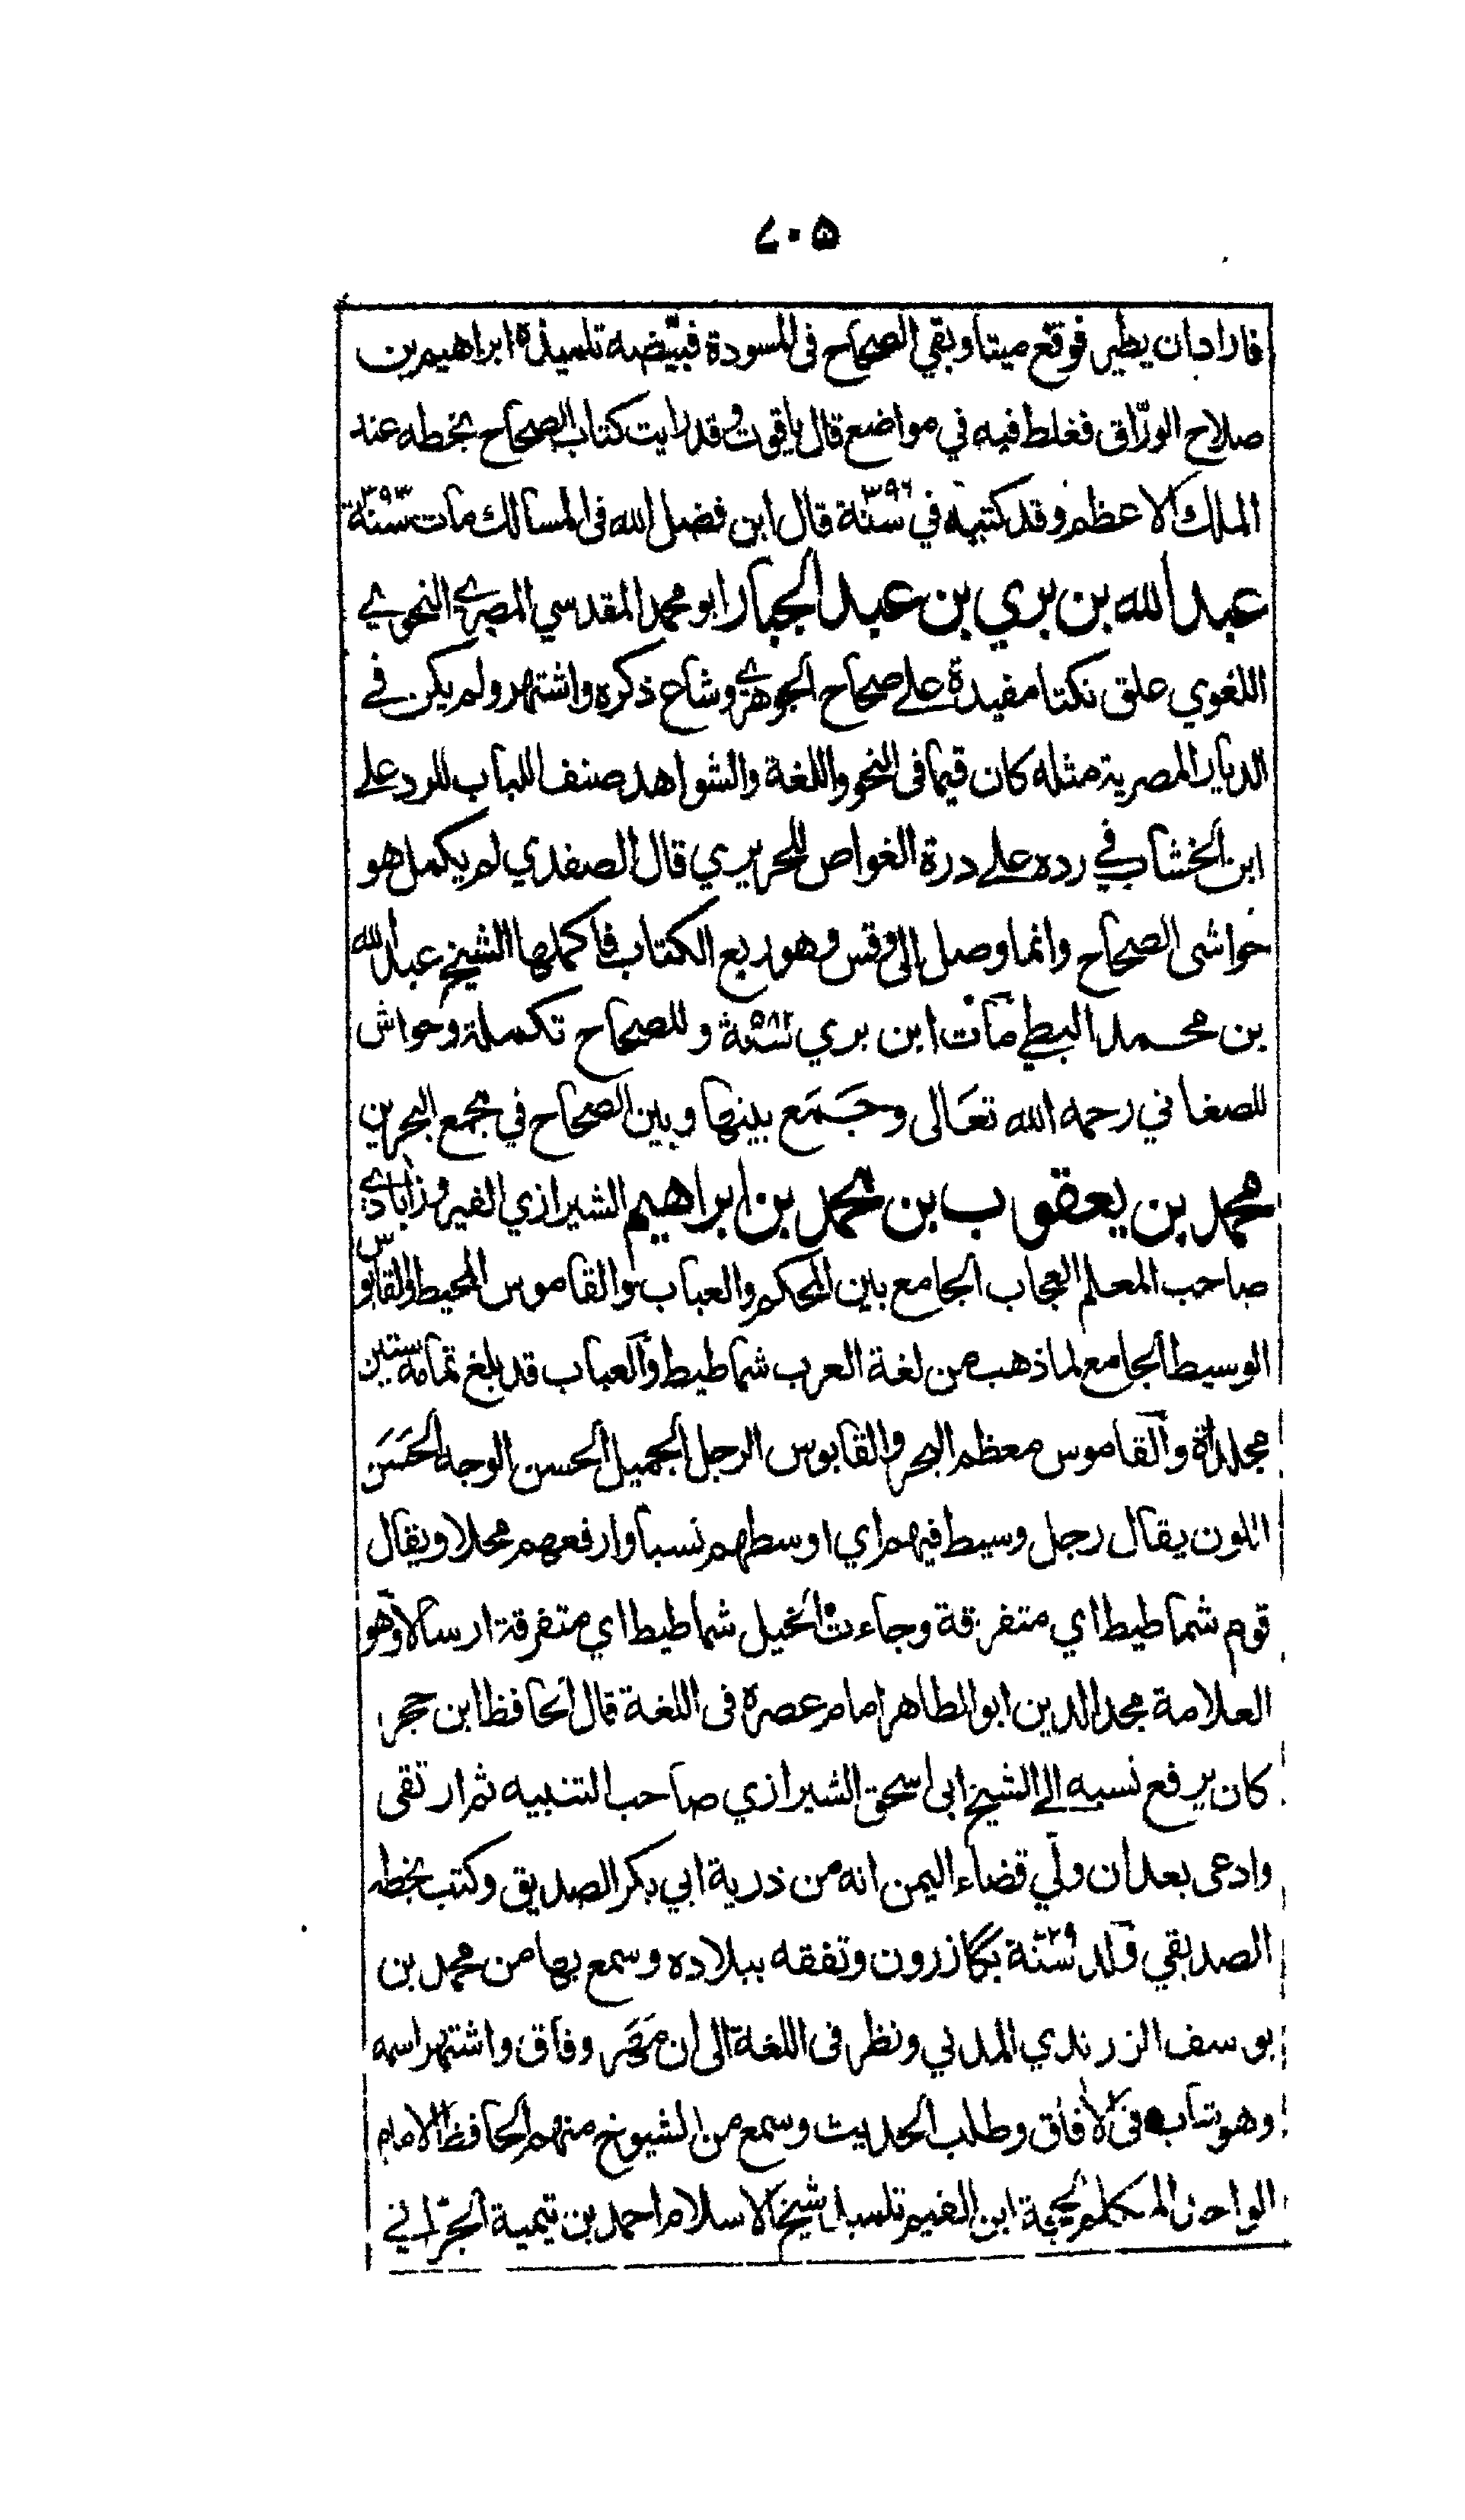 ۷۰۵
فاراد ان يطير فوقع ميتا وبقي الصحاح فى المسودة فبيّضه تلميذه ابراهيم بن
صلاح الورّاق فغلط فيه في مواضع قال ياقوت وقد رايت كتاب الصحاح بخطه عند
الملك الاعظم وقد كتبه في سنة ٣٩٦ قال ابن فضل الله فى المسالك مات سنة ٣٩٣
عبد الله بن بري بن عبد الجبار ابو محمد المقدسي المصري النحوي
اللغوي علق نكتا مفيدة على صحاح الجوهري وشاع ذكره واشتهر ولم يكن في
الديار المصرية مثله كان قيما فى النحو واللغة والشواهد صنف اللباب للرد على
ابن الخشاب في رده على درة الغواص للحريري قال الصفدي لم يكمل هو
حواشى الصحاح وانما وصل الى وقس وهو ربع الكتاب فاكملها الشيخ عبد الله
بن محمد البسطي مات ابن بري سنة ٥٨٢ وللصحاح تكملة وحواش
للصغاني رحمه الله تعَالى وجَمَع بينها وبين الصحاح في مجمع البحرين
محمد بن يعقوب بن محمد بن ابراهيم الشيرازي الفيروزابادي
صاحب المعلم العجاب الجامع بين المحكم والعباب والقاموس المحيط والقابوس
الوسيط الجامع لما ذهب من لغة العرب شماطيط والعباب قد بلغ تمامه ستين
مجلدة والقاموس معظم البحر والقابوس الرجل الجميل الحسن الوجه الحَسَن
اللون يقال رجل وسيط فيهم اي اوسطهم نسبا وارفعهم محلا ويقال
قوم شماطيط اي متفرقة وجاءت الخيل شماطيط اي متفرقة ارسالا وهو
العلامة مجد الدين ابو الطاهر امام عصره فى اللغة قال الحافظ ابن حجر
كان يرفع نسبه الى الشيخ ابى اسحق الشيرازي صاحب التنبيه ثم ارتقى
وادعى بعد ان ولي قضاء اليمن انه من ذرية ابي بكر الصديق وكتب بخطه
الصديقي ولد سنة ٧٢٩ بگازرون وتفقه ببلاده وسمع بها من محمد بن
يوسف الزرندي المدني ونظر فى اللغة الى ان مَهَر وفاق واشتهر اسمه
وهو شاب فى الافاق وطلب الحديث وسمع من الشيوخ منهم الحافظ الامام
الواحد المتكلم الحجة ابن القيم تلميذ شيخ الاسلام احمد بن تيمية الحرّاني